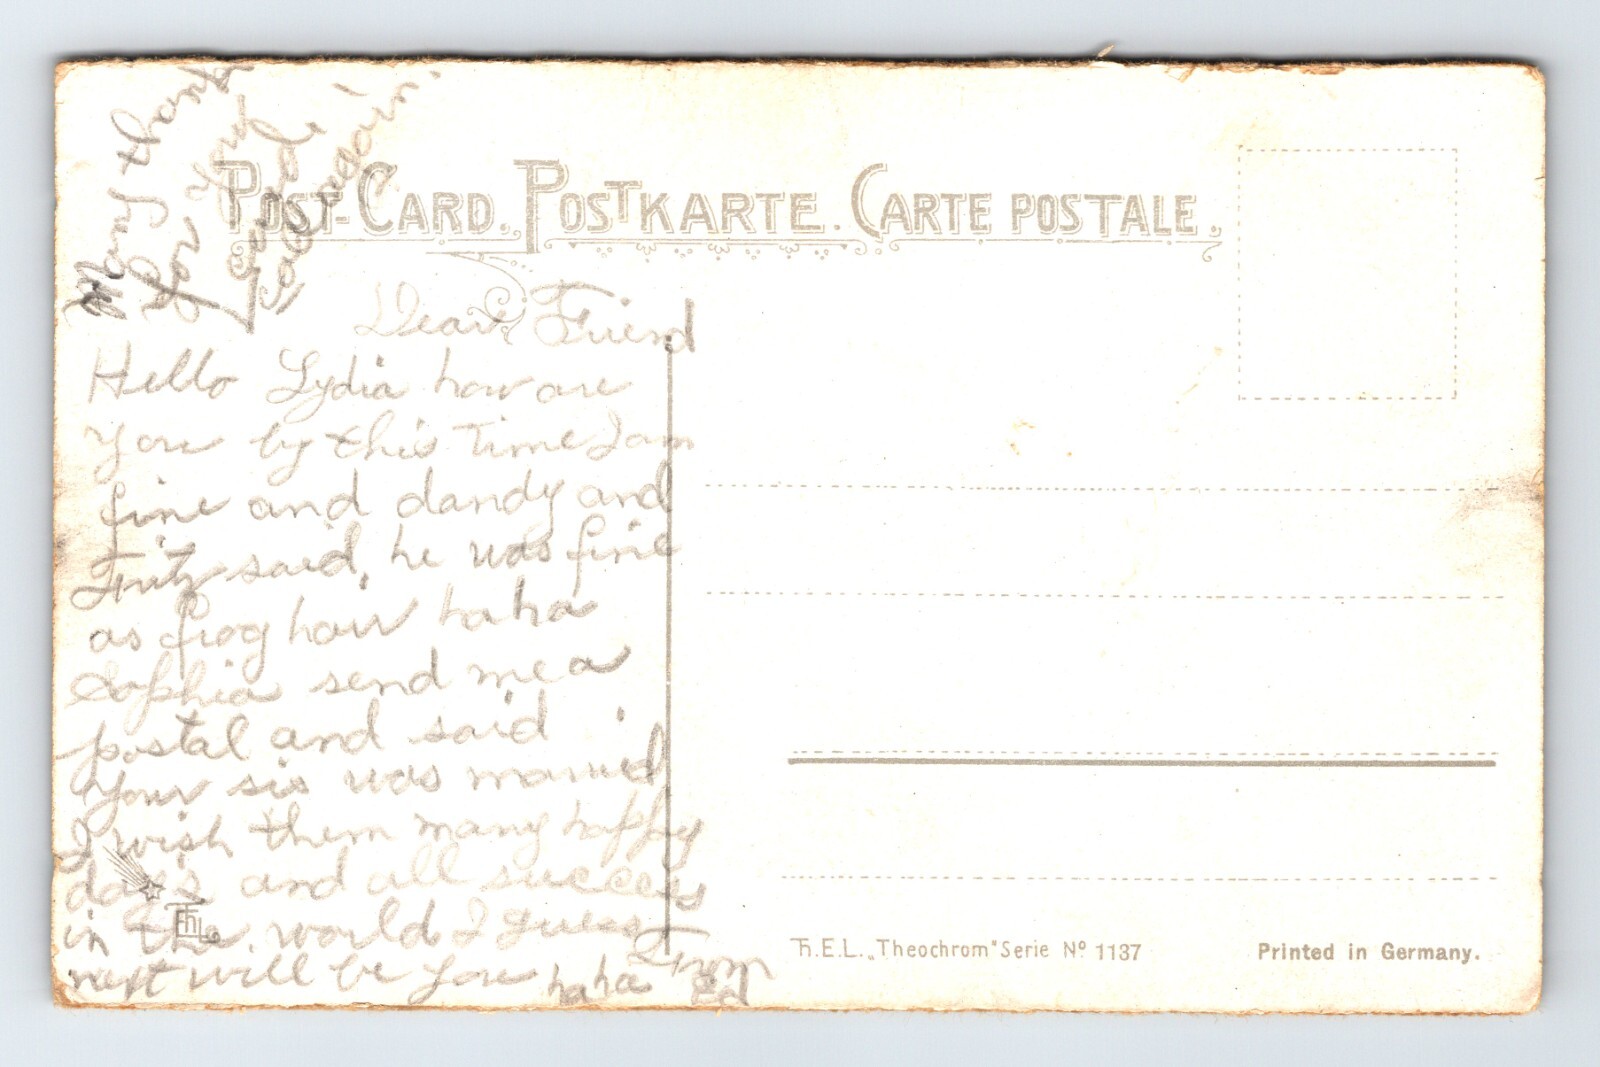 Many thanks
for your
card
call again.
POST-CARD. POSTKARTE. CARTE POSTALE.
Dear Friend
Hello Lydia how are
you by this time I am
fine and dandy and
Fritz said, he was fine
as frog hair haha
Sophia send me a
postal and said
your sis was married
I wish them many happy
days and all success
in the world I guess
next will be you haha From
Ed
ThEL
Th.E.L. „Theochrom" Serie Nº 1137
Printed in Germany.